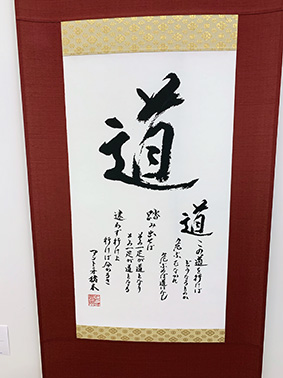 道
道
この道を行けば
どうなるものか
危ぶむなかれ
危ぶめば道はなし
踏み出せば
その一足が道となり
その一足が道となる
迷わず行けよ
行けば分かるさ
アントニオ猪木